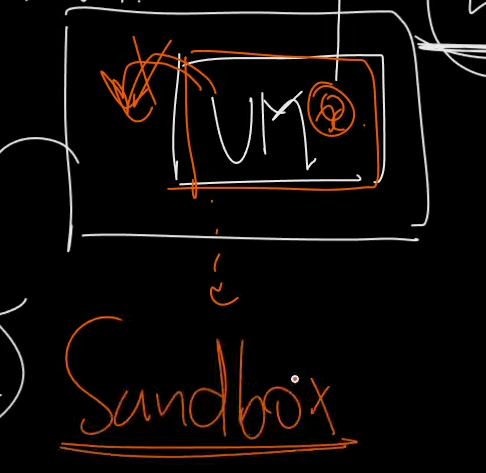 VM
Sandbox